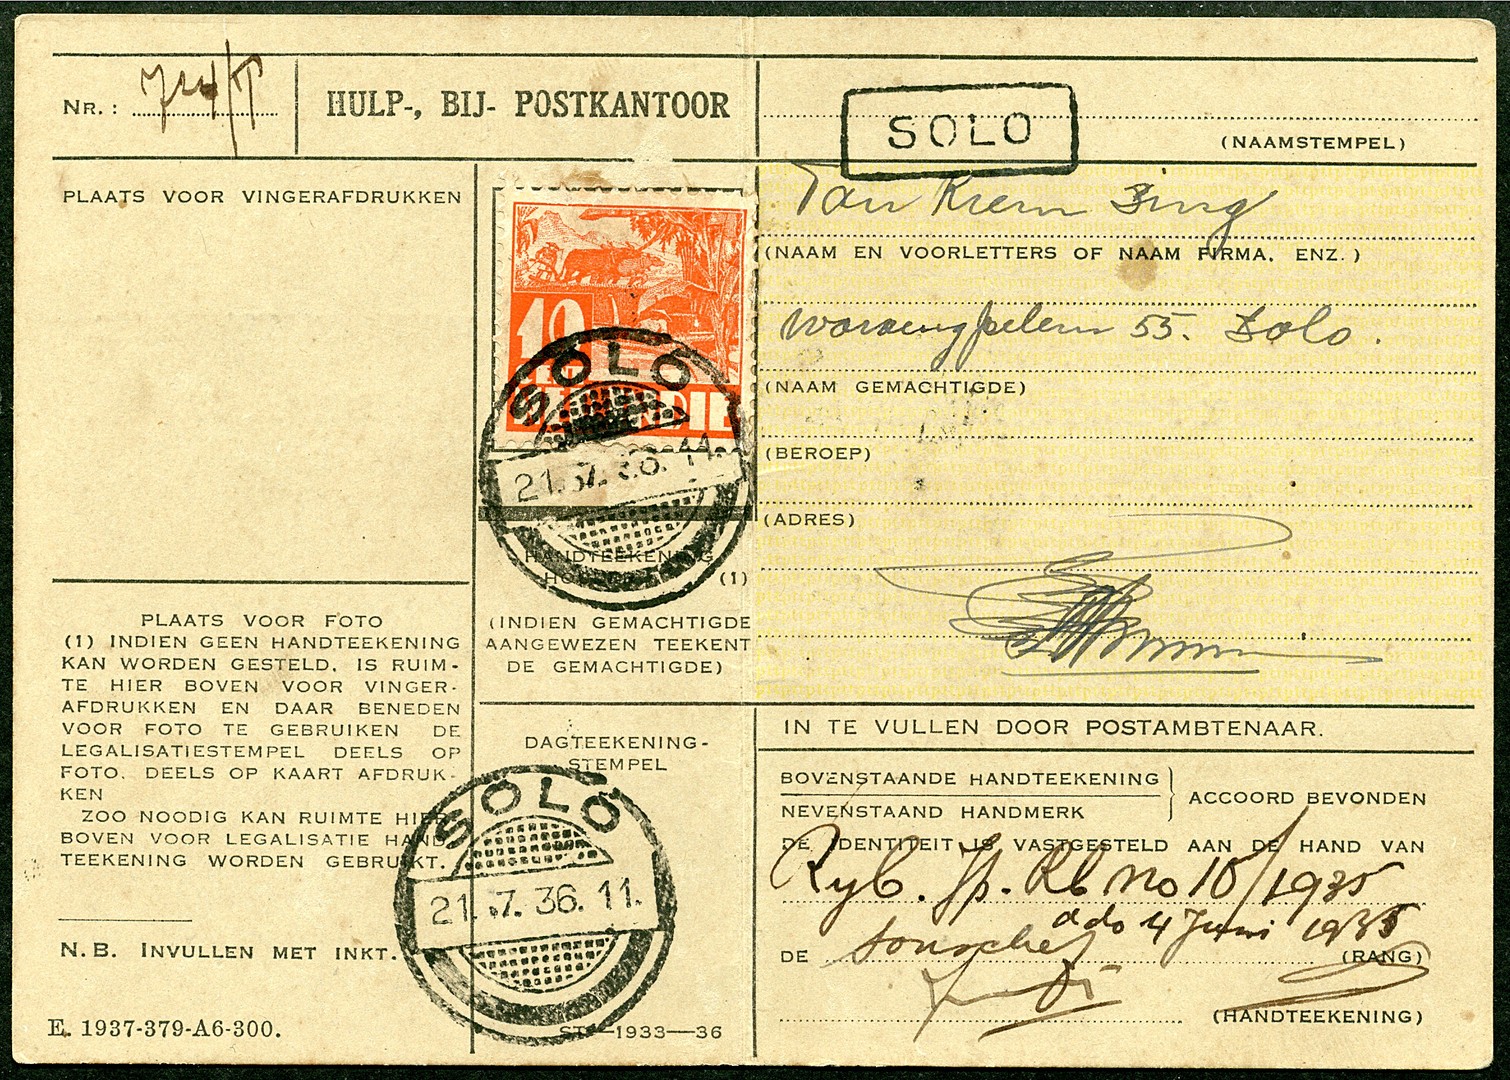 NR. :
HULP-, BIJ- POSTKANTOOR
SOLO
(NAAMSTEMPEL)
PLAATS VOOR VINGERAFDRUKKEN
10
CT
IND IE
SOLO
21.7.36.11.
Tan Kiem Sing
(NAAM EN VOORLETTERS OF NAAM FIRMA, ENZ.)
55. Solo.
(NAAM GEMACHTIGDE)
(BEROEP)
(ADRES)
HANDTEEKENING
(1)
(INDIEN GEMACHTIGDE
AANGEWEZEN TEEKENT
DE GEMACHTIGDE)
PLAATS VOOR FOTO
(1) INDIEN GEEN HANDTEEKENING
KAN WORDEN GESTELD, IS RUIM-
TE HIER BOVEN VOOR VINGER-
AFDRUKKEN EN DAAR BENEDEN
VOOR FOTO TE GEBRUIKEN DE
LEGALISATIESTEMPEL DEELS OP
FOTO. DEELS OP KAART AFDRUK-
KEN
ZOO NOODIG KAN RUIMTE HIER
BOVEN VOOR LEGALISATIE HAND
TEEKENING WORDEN GEBRUIKT.
N.B. INVULLEN MET INKT.
E. 1937-379-A6-300.
DAGTEEKENING-
STEMPEL
SOLO
21.7.36.11.
1933—36
IN TE VULLEN DOOR POSTAMBTENAAR.
BOVENSTAANDE HANDTEEKENING
NEVENSTAAND HANDMERK
ACCOORD BEVONDEN
DE IDENTITEIT IS VASTGESTELD AAN DE HAND VAN
Ryb. Jp. Rb no 10/1935
ddo 4 Juni 1935
DE
(RANG)
(HANDTEEKENING)